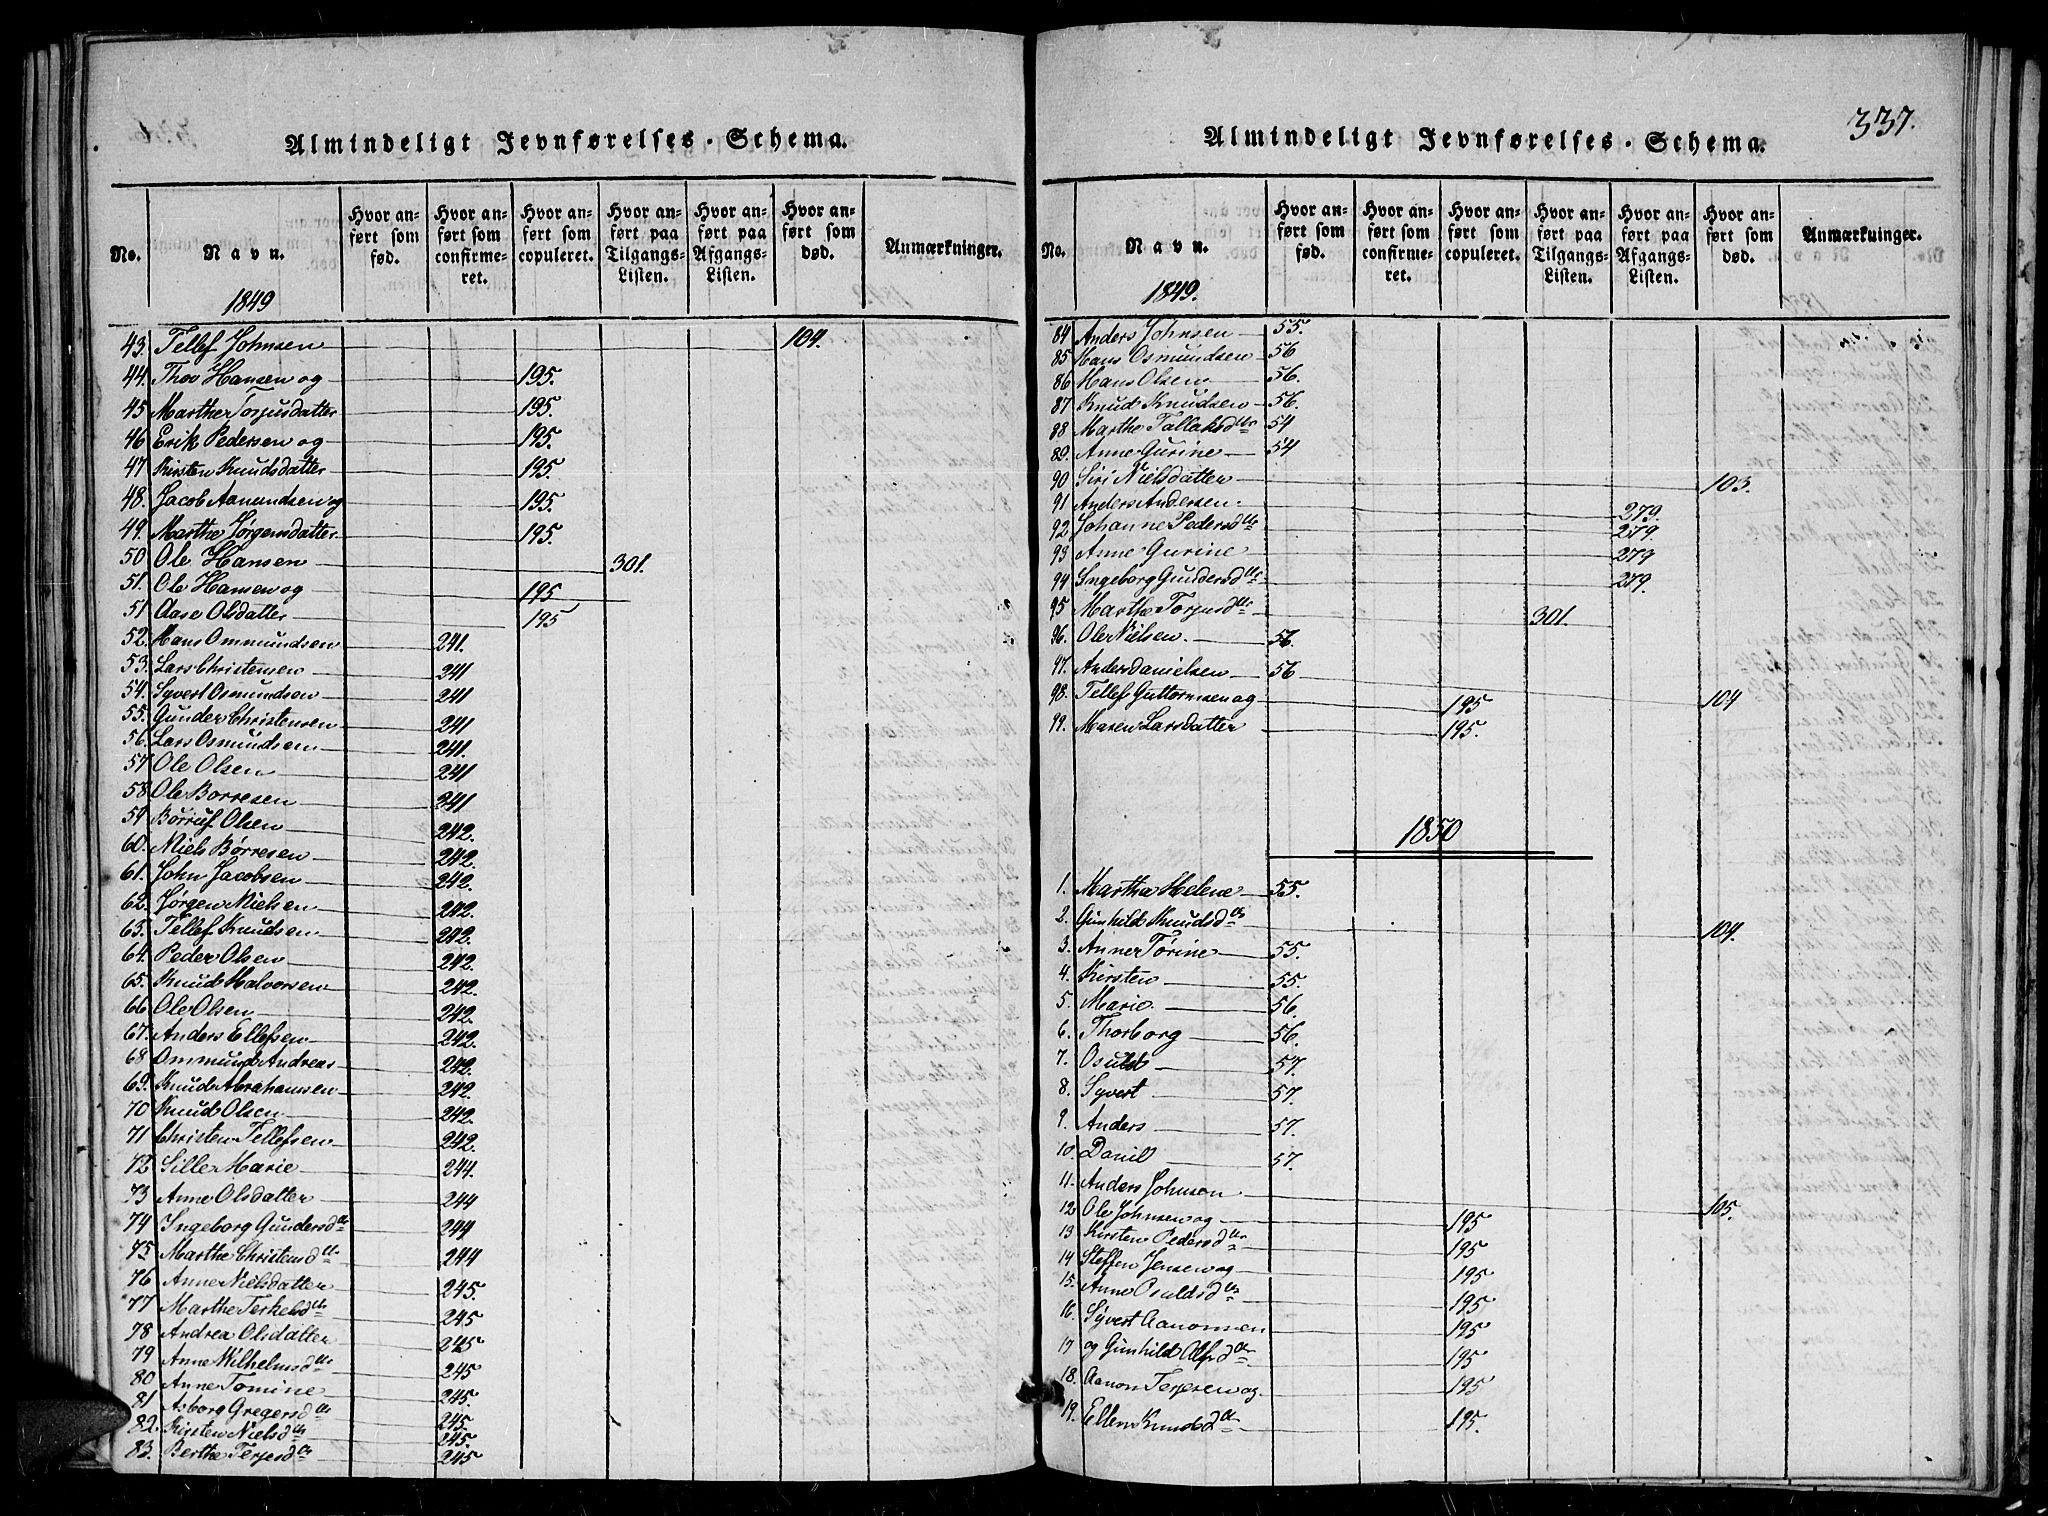 Almindeligt Jevnførelses-Schema.
No. Navn. Hvor anført som fød. Hvor anført som confirmeret. Hvor anført som copuleret. Hvor anført paa Tilgangs-Listen. Hvor anført paa Afgangs-Listen. Hvor anført som død. Anmærkninger.
1849
43. Tellef Johnsen 104.
44. Thov Hansen og 195.
45 Marthe Torjusdatter 195.
46 Erik Pedersen og 195.
47 Kirsten Knudsdatter 195.
48. Jacob Aanundsen og 195.
49. Marthe Jørgensdatter 195.
50 Ole Hansen 301.
51. Ole Hansen og 195
51 Aase Olsdatter 195
52. Hans Ommundsen 241.
53. Lars Christensen 241
54. Syvert Osmundsen 241
55. Gunder Christensen 241
56. Lars Osmundsen 241.
57 Ole Olsen 241
58 Ole Borresen 241
59 Børruf Olsen 242.
60. Niels Børresen 242.
61. John Jacobsen 242.
62. Jørgen Nielsen 242.
63. Tellef Knudsen 242.
64. Peder Olsen 242.
65. Knud Halvorsen 242.
66 Ole Olsen 242.
67. Anders Ellefsen 242.
68 Ommund Andreas 242.
69. Knud Abrahamsen 242.
70 Knud Olsen 242.
71 Christen Tellefsen 242.
72 Sille Marie 244.
73 Anne Olsdatter 244
74 Ingeborg Gundersdtr 244
75 Marthe Christensdtr 244
76 Anne Nielsdatter 245.
77 Marthe Terkelsdtr 245
78 Andrea Olsdatter 245
79 Anne Wilhelmsdtr 245
80 Anne Tomine 245.
81 Asborg Gregersdtr 245
82. Kirsten Nielsdtr 245.
83. Berthe Terjesdtr 245
337.
Almindeligt Jevnførelses-Schema.
No. Navn. Hvor anført som fød. Hvor anført som confirmeret. Hvor anført som copuleret. Hvor anført paa Tilgangs-Listen. Hvor anført paa Afgangs-Listen. Hvor anført som død. Anmærkninger.
1849.
84 Anders Johnsen 55.
85 Hans Osmundsen 56
86 Hans Olsen 56.
87 Knud Knudsen 56.
88 Marthe Tallaksdtr 54
89. Anne Gurine 54
90 Siri Nielsdatter 103.
91 Anders Andersen 279.
92 Johanne Pedersdtr 279.
93 Anne Gurine 279
94 Ingeborg Gundersdtr 279.
95 Marthe Torjusdtr 301.
96. Ole Nielsen. 56.
97. Anders Danielsen 56
98. Tellef Guttormsen og 195 104
99. Maren Larsdatter 195.
1850
1. Marthe Helene 55.
2. Gunhild Knudsdtr 104.
3. Anne Tørine 55.
4. Kirsten 55.
5. Marie 56.
6. Thorborg 56.
7. Osuld 57.
8. Syvert 57.
9. Anders 57.
10. Daniel 57.
11. Anders Johnsen 105.
12 Ole Johnsen og 195
13 Kirsten Pedersdtr 195
14 Steffen Jensen og 195
15. Anne Osuldsdtr 195
16 Syvert Aanonsen 195
17 og Gunhild Alfsdtr 195
18. Aanon Terjesen og 195
19. Ellen Knudsdtr 195.